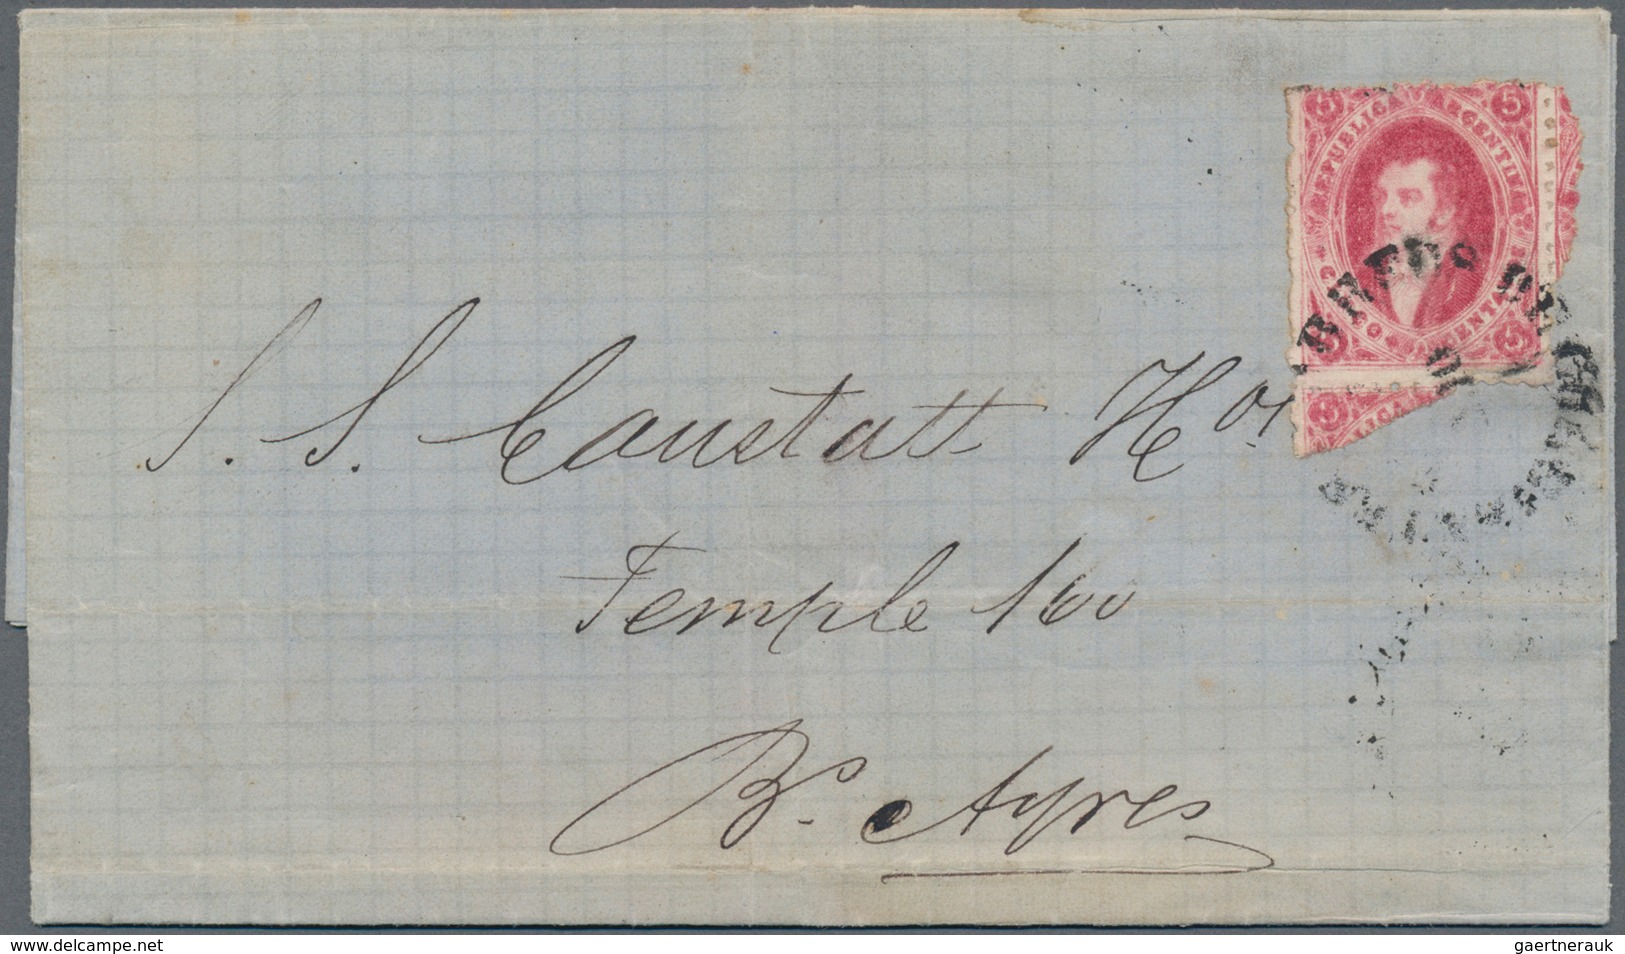 5 REPUBLICA ARGENTINA 5
5 CINCO CENTAVOS 5
5
S. S. Constatt Hos
Temple 160
Bs. Ayres
www.delcampe.net
gaertnerauk